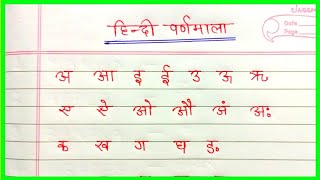 CLASSM
Date
Page
हिन्दी वर्णमाला
अ आ इ ई उ ऊ ऋ
ए ऐ ओ औ अं अः
क ख ग घ ङ